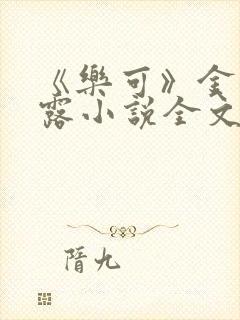 《樂可》金
露小說全文
隋九